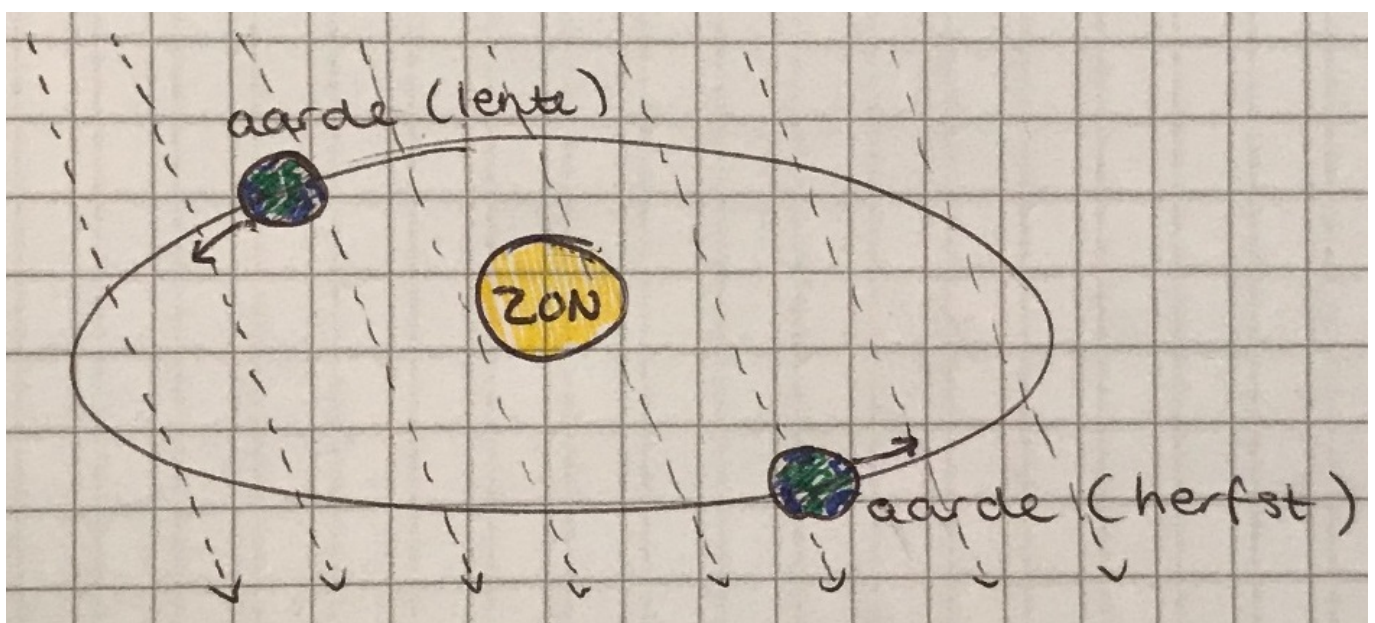 aarde (lente)
ZON
aarde (herfst)